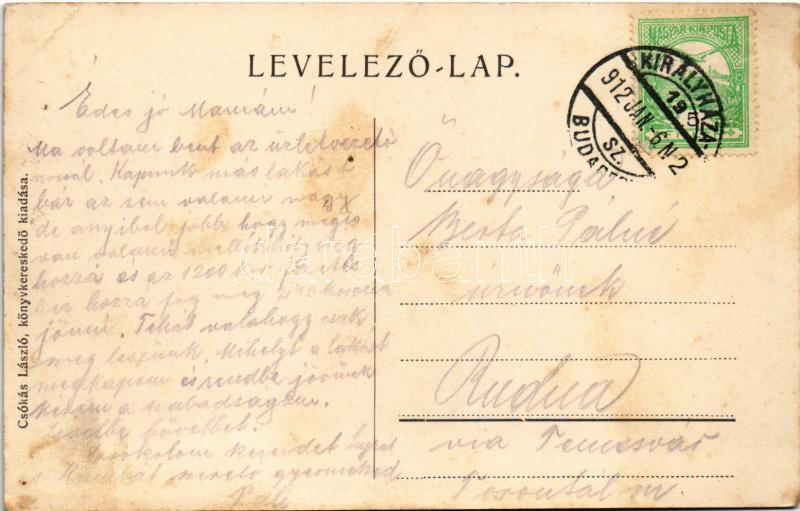 LEVELEZŐ-LAP.
MAGYAR KIR. POSTA
KIRÁLYHÁZA
195
912 JAN. -6 N 2
SZ.
BUDAPEST
Csókás László, könyvkereskedő kiadása.
Édes jó Mamám!
Ma voltam bent az üzletvezető
nénél. Kapunk más lakást
bár az sem valami nagy
de annyiból jobb hogy mégis
van valami mellék
hozzá és az 1200 kor fizetés
hez hozzá fog még 240 korona
jönni. Tehát valahogy csak
meg leszünk. Mihelyt a lakást
megkapom és rendbe jövünk
kérem a szabadságom.
Levélbe bővebbet.
Csókolom kezedet
szerető gyermeked
Pali
Őnagysága
Berta Pálné
úrnőnek
Rudna
via Temesvár
Torontál m.
darabanth